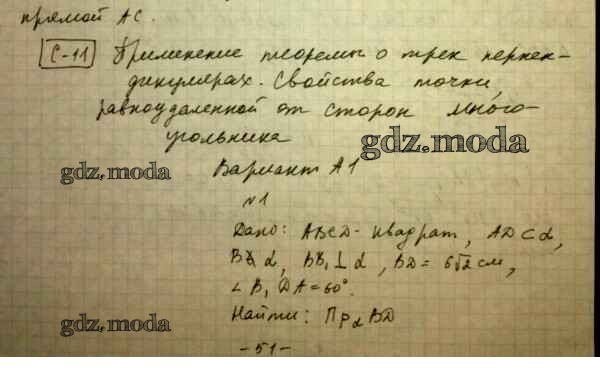 прямой AC.
С-11 Применение теоремы о трех перпен-
дикулярах. Свойства точки,
равноудаленной от сторон много-
угольника
gdz.moda
gdz.moda
Вариант А1
№1
Дано: ABCD - квадрат, AD ⊂ α,
B∉ α, BB₁ ⊥ α, BD = 6√2 см,
∠ B₁DA = 60°.
Найти: Пр α BD
gdz.moda
-51-